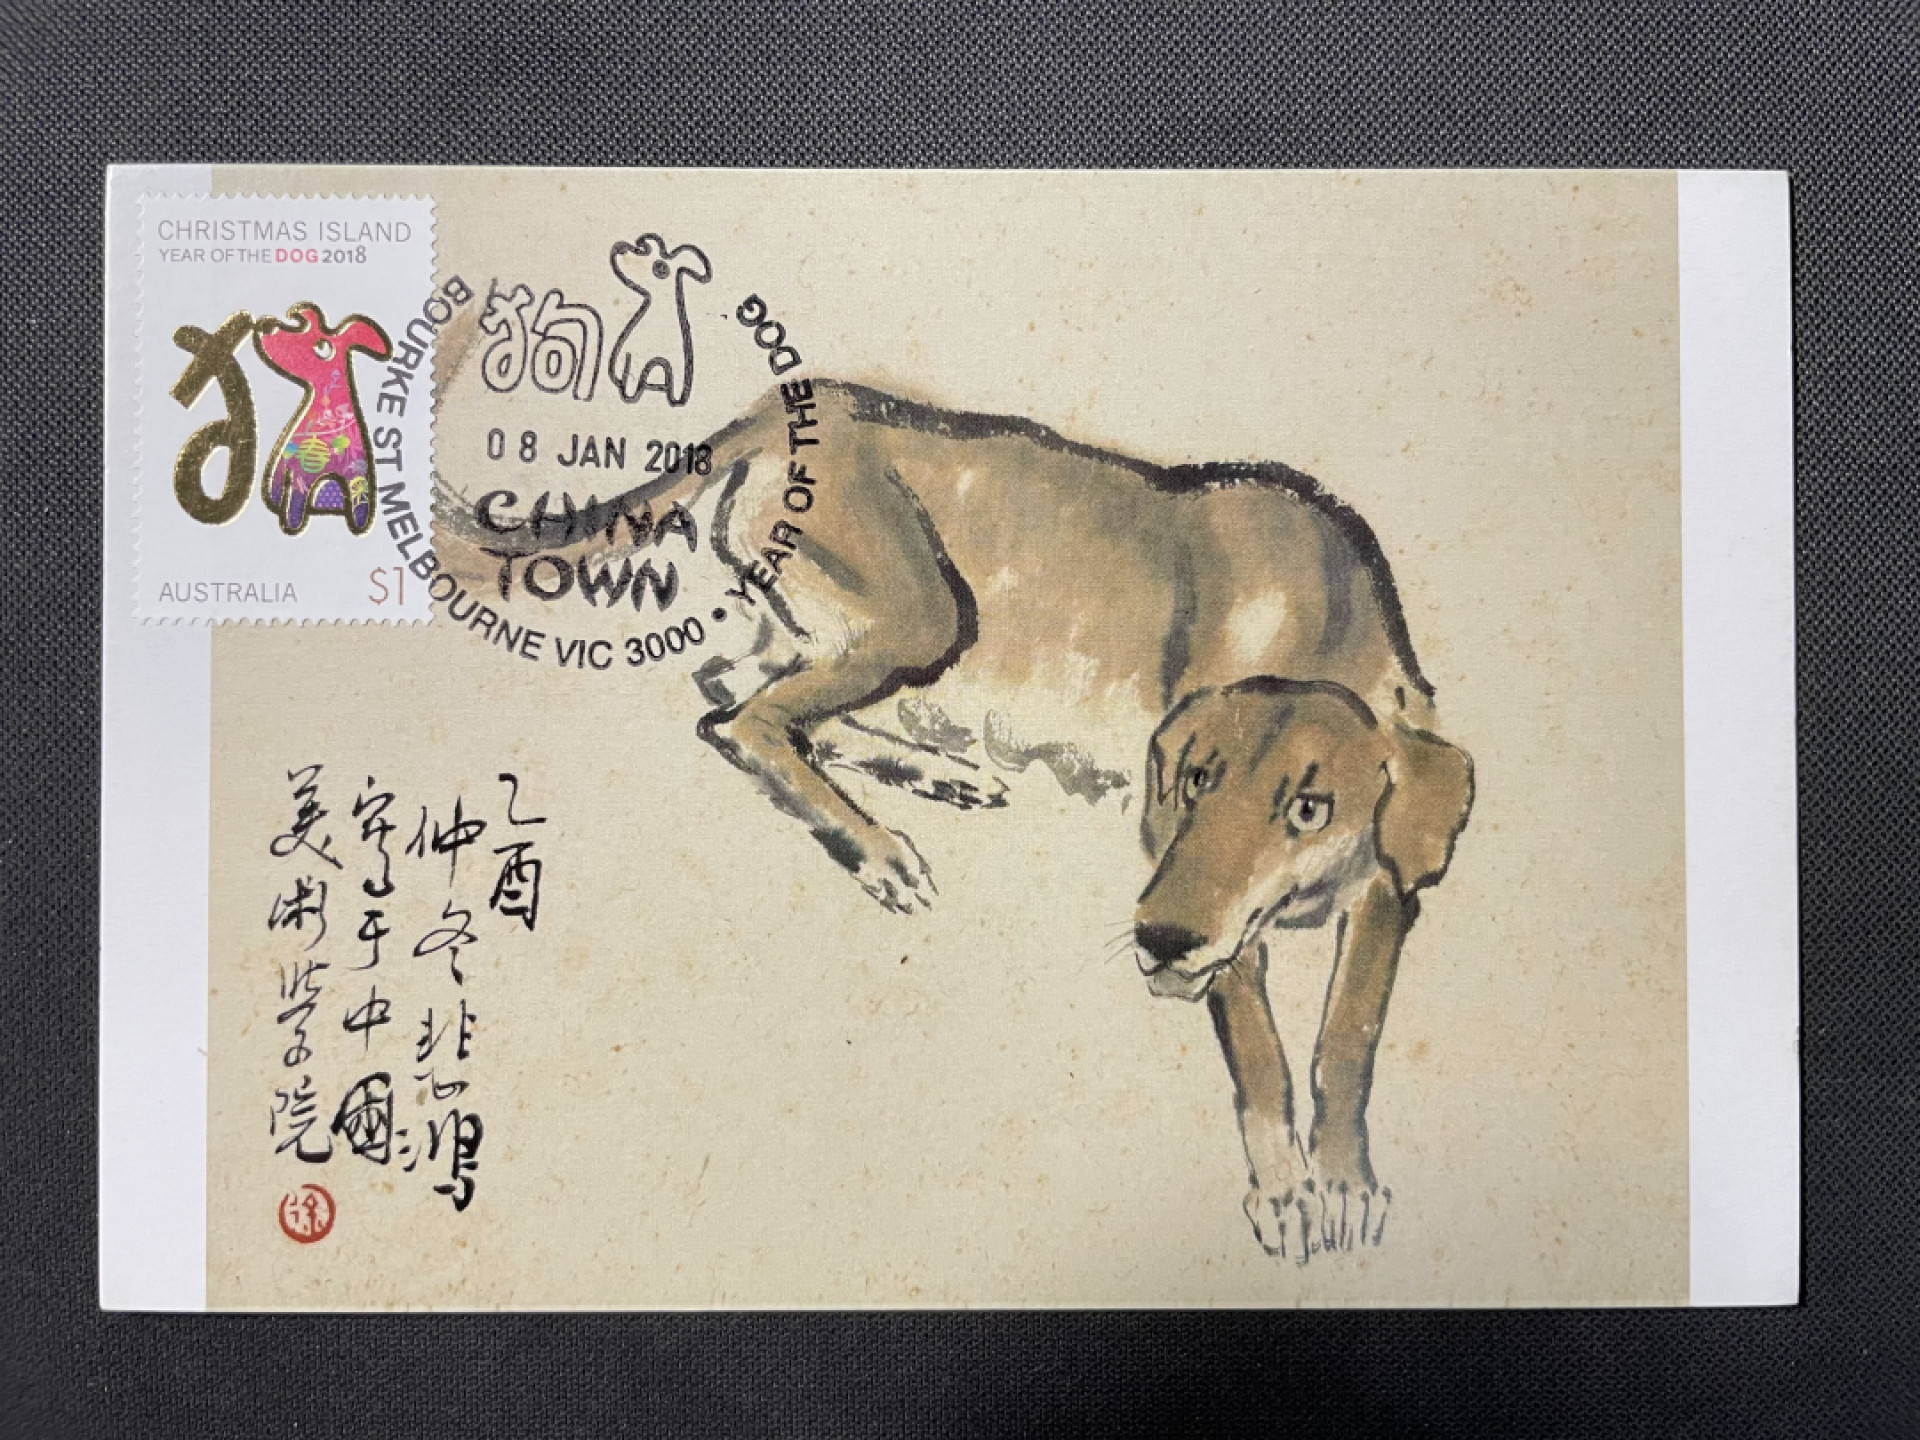 CHRISTMAS ISLAND
YEAR OF THE DOG 2018
AUSTRALIA $1
狗
08 JAN 2018
CHINA
TOWN
BOURKE ST MELBOURNE VIC 3000 • YEAR OF THE DOG
乙酉
仲冬悲鸿
写于中國
美術学院
徐